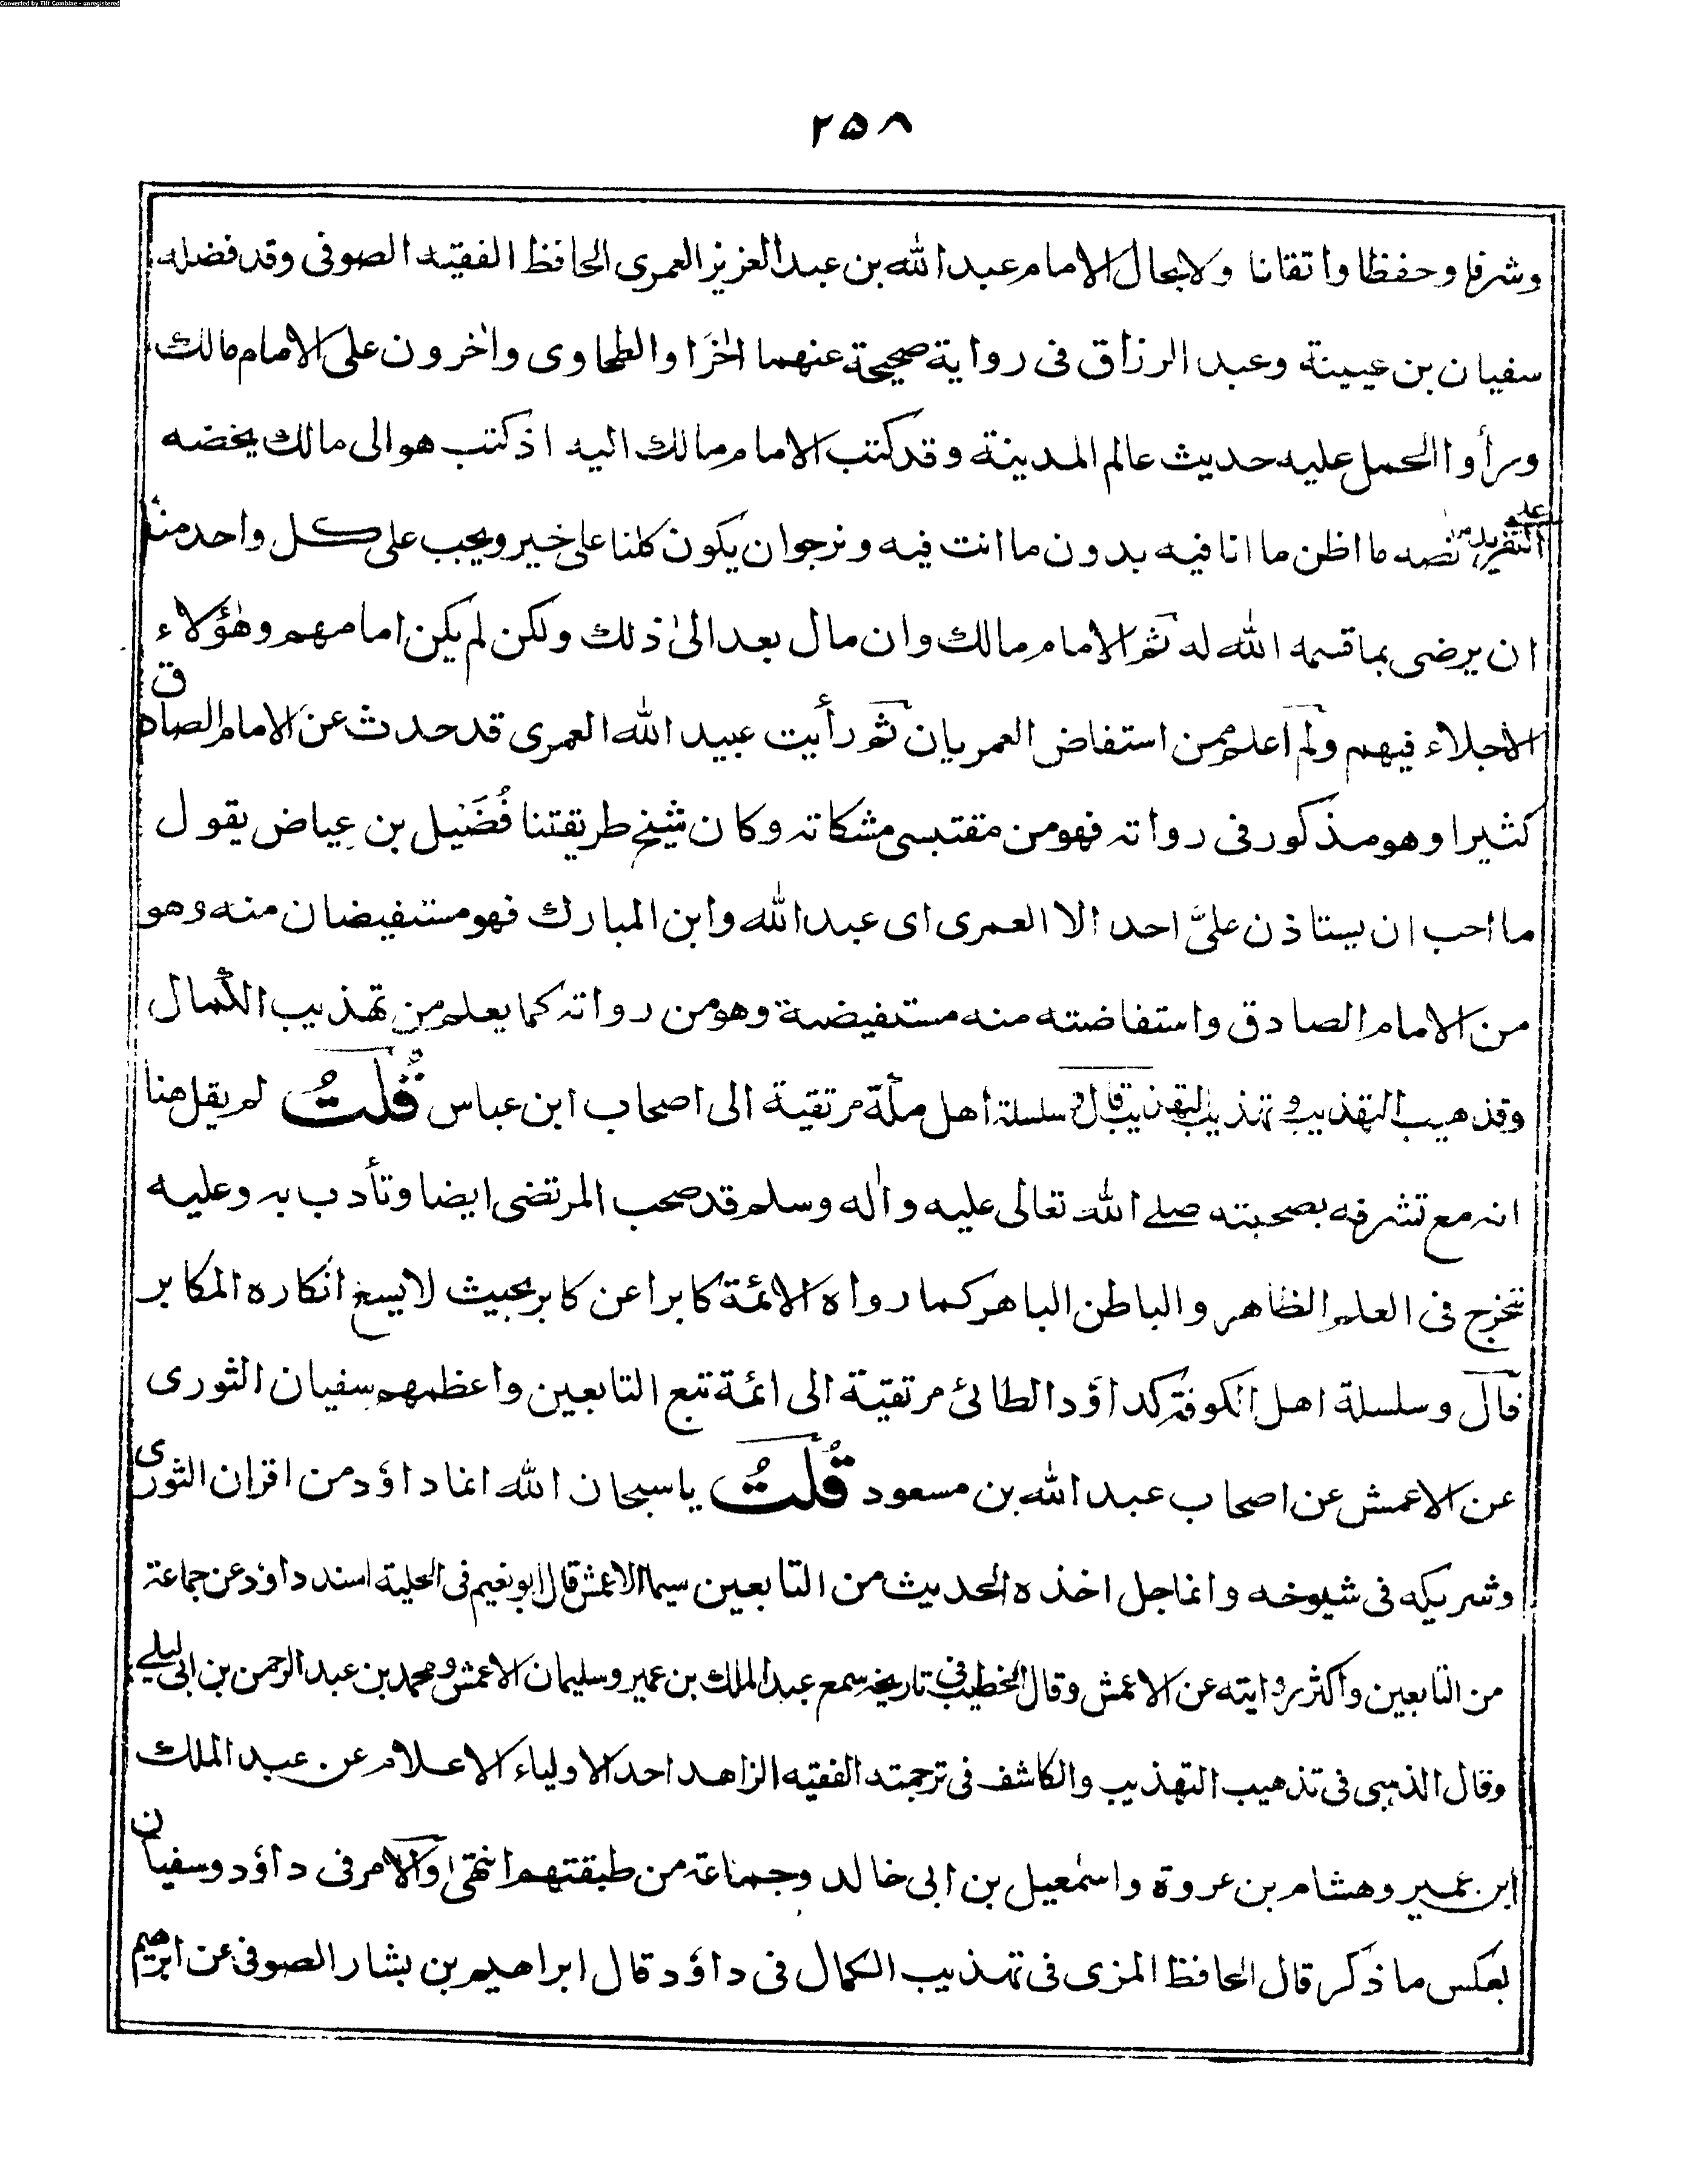 Converted by Tiff Combine - unregistered
٢٥٨
وشرفا وحفظا واتقانا ولا بحال الامام عبد الله بن عبد العزيز العمرى الحافظ الفقيه الصوفى وقد فضله
سفيان بن عيينة وعبد الرزاق فى رواية صحيحة عنهما اٰخرا والطحاوى واٰخرون على الامام مالك
ورأوا الحمل عليه حديث عالم المدينة وقد كتب الامام مالك اليه اذ كتب هو الى مالك يخضه
على التفريد نصه ما اظن ما انا فيه بدون ما انت فيه ونرجوان يكون كلنا على خير ويجب على كل واحد منا
ان يرضى بما قسمه الله له ثم الامام مالك وان مال بعد الىٰ ذلك ولكن لم يكن امامهم وهٰؤلاء
الاجلاء فيهم ولم اعلم ممن استفاض العمريان ثم رأيت عبيد الله العمرى قد حدث عن الامام الصادق
كثيرا وهو مذكور فى رواته فهو من مقتبسى مشكاته وكان شيخ طريقتنا فُضَيل بن عِياض يقول
ما احب ان يستاذن علىَّ احد الا العمرى اى عبد الله وابن المبارك فهو مستفيضان منه وهو
من الامام الصادق واستفاضته منه مستفيضة وهو من رواته كما يعلم من تهذيب الكمال
وتذهيب التهذيب وتهذيب التهذيب قال وسلسلة اهل مكّة مرتقية الى اصحاب ابن عباس قُلتُ لم يقل هنا
انه مع تشرفه بصحبته صلے الله تعالى عليه واٰله وسلم قد صحب المرتضى ايضا وتأدب به وعليه
تخرج فى العلم الظاهر والباطن الباهر كما رواه الائمة كابرا عن كابر بحيث لا يسغ انكاره المكابر
قال وسلسلة اهل الكوفة كداؤد الطائى مرتقية الى ائمة تبع التابعين واعظمهم سفيان الثورى
عن الاعمش عن اصحاب عبد الله بن مسعود قُلتُ يا سبحان الله انما داؤد من اقران الثورى
وشريكه فى شيوخه وانما جل اخذه الحديث من التابعين سيما الاعمش قال ابو نعيم فى الحلية اسند داؤد عن جماعة
من التابعين واكثر روايته عن الاعمش وقال الخطيب فى تاريخه سمع عبد الملك بن عمير وسليمان الاعمش ومحمد بن عبد الرحمن بن ابى ليلے
وقال الذهبى فى تذهيب التهذيب والكاشف فى ترجمته الفقيه الزاهد احد الاولياء الاعلام عن عبد الملك
ابن عمير وهشام بن عروة واسمٰعيل بن ابى خالد وجماعة من طبقتهم انتهىٰ والامر فى داؤد وسفيان
بعكس ما ذكر قال الحافظ المزى فى تهذيب الكمال فى داؤد قال ابراهيم بن بشار الصوفى عن ابرٰهيم